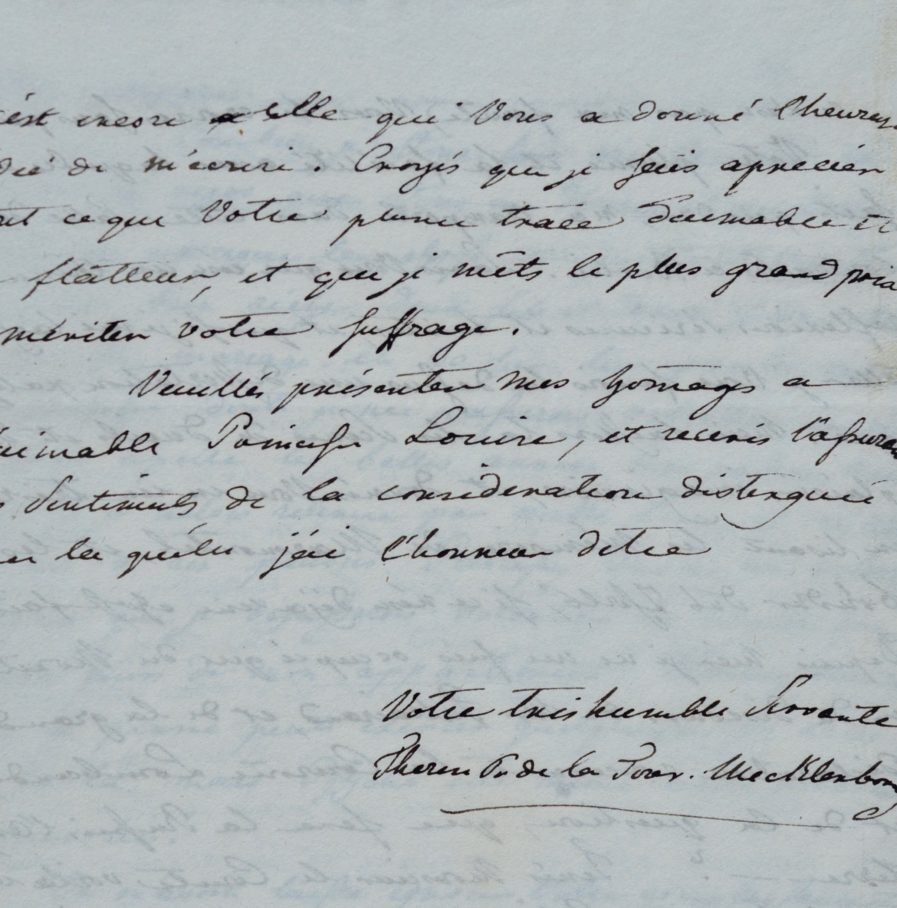 c'est encore elle qui Vous a donné l'heureu
dée de m'ecrire. Croyés que je sais aprecier
out ce que Votre plume trace d'aimable et
flatteur, et que je mèts le plus grand prix
meriter votre suffrage.
Veuillés présenter mes homages a
aimable Princesse Louise, et recevés l'assuran
Sentiments de la consideration distinguée
la quéle j'ai l'honneur detre
Votre tres humble Servante
Therese Pr. de la Tour. Mecklenbourg